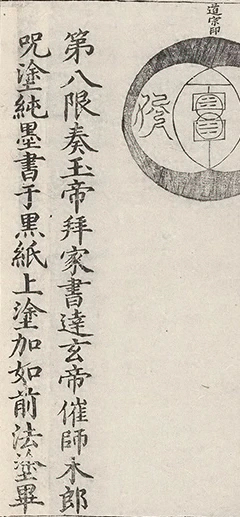 道宗印
第八限奏玉帝拜家書達玄帝催師木郎
呪塗純墨書于黒紙上塗加如前法塗畢